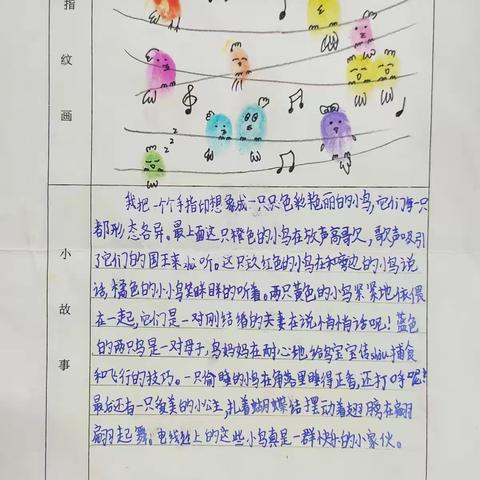 指
纹
画
z
z
z
小
故
事
我把一个个手指印想象成一只只色彩艳丽的小鸟,它们每一只
都形态各异。最上面这只橙色的小鸟在放声高歌,歌声吸引
了它们的国王来聆听。这只玫红色的小鸟在和旁边的小鸟说
话,橘色的小小鸟笑眯眯的听着。两只黄色的小鸟紧紧地依偎
在一起,它们是一对刚结婚的夫妻在说悄悄话呢!蓝色
的两只鸟是一对母子,鸟妈妈在耐心地给鸟宝宝传shòu捕食
和飞行的技巧。一只偷睡的小鸟在角落里睡得正香,还打呼呢!
最后还有一只爱美的小公主,扎着蝴蝶结摆动着翅膀在翩
翩起舞。电线丝上的这些小鸟真是一群快乐的小家伙。